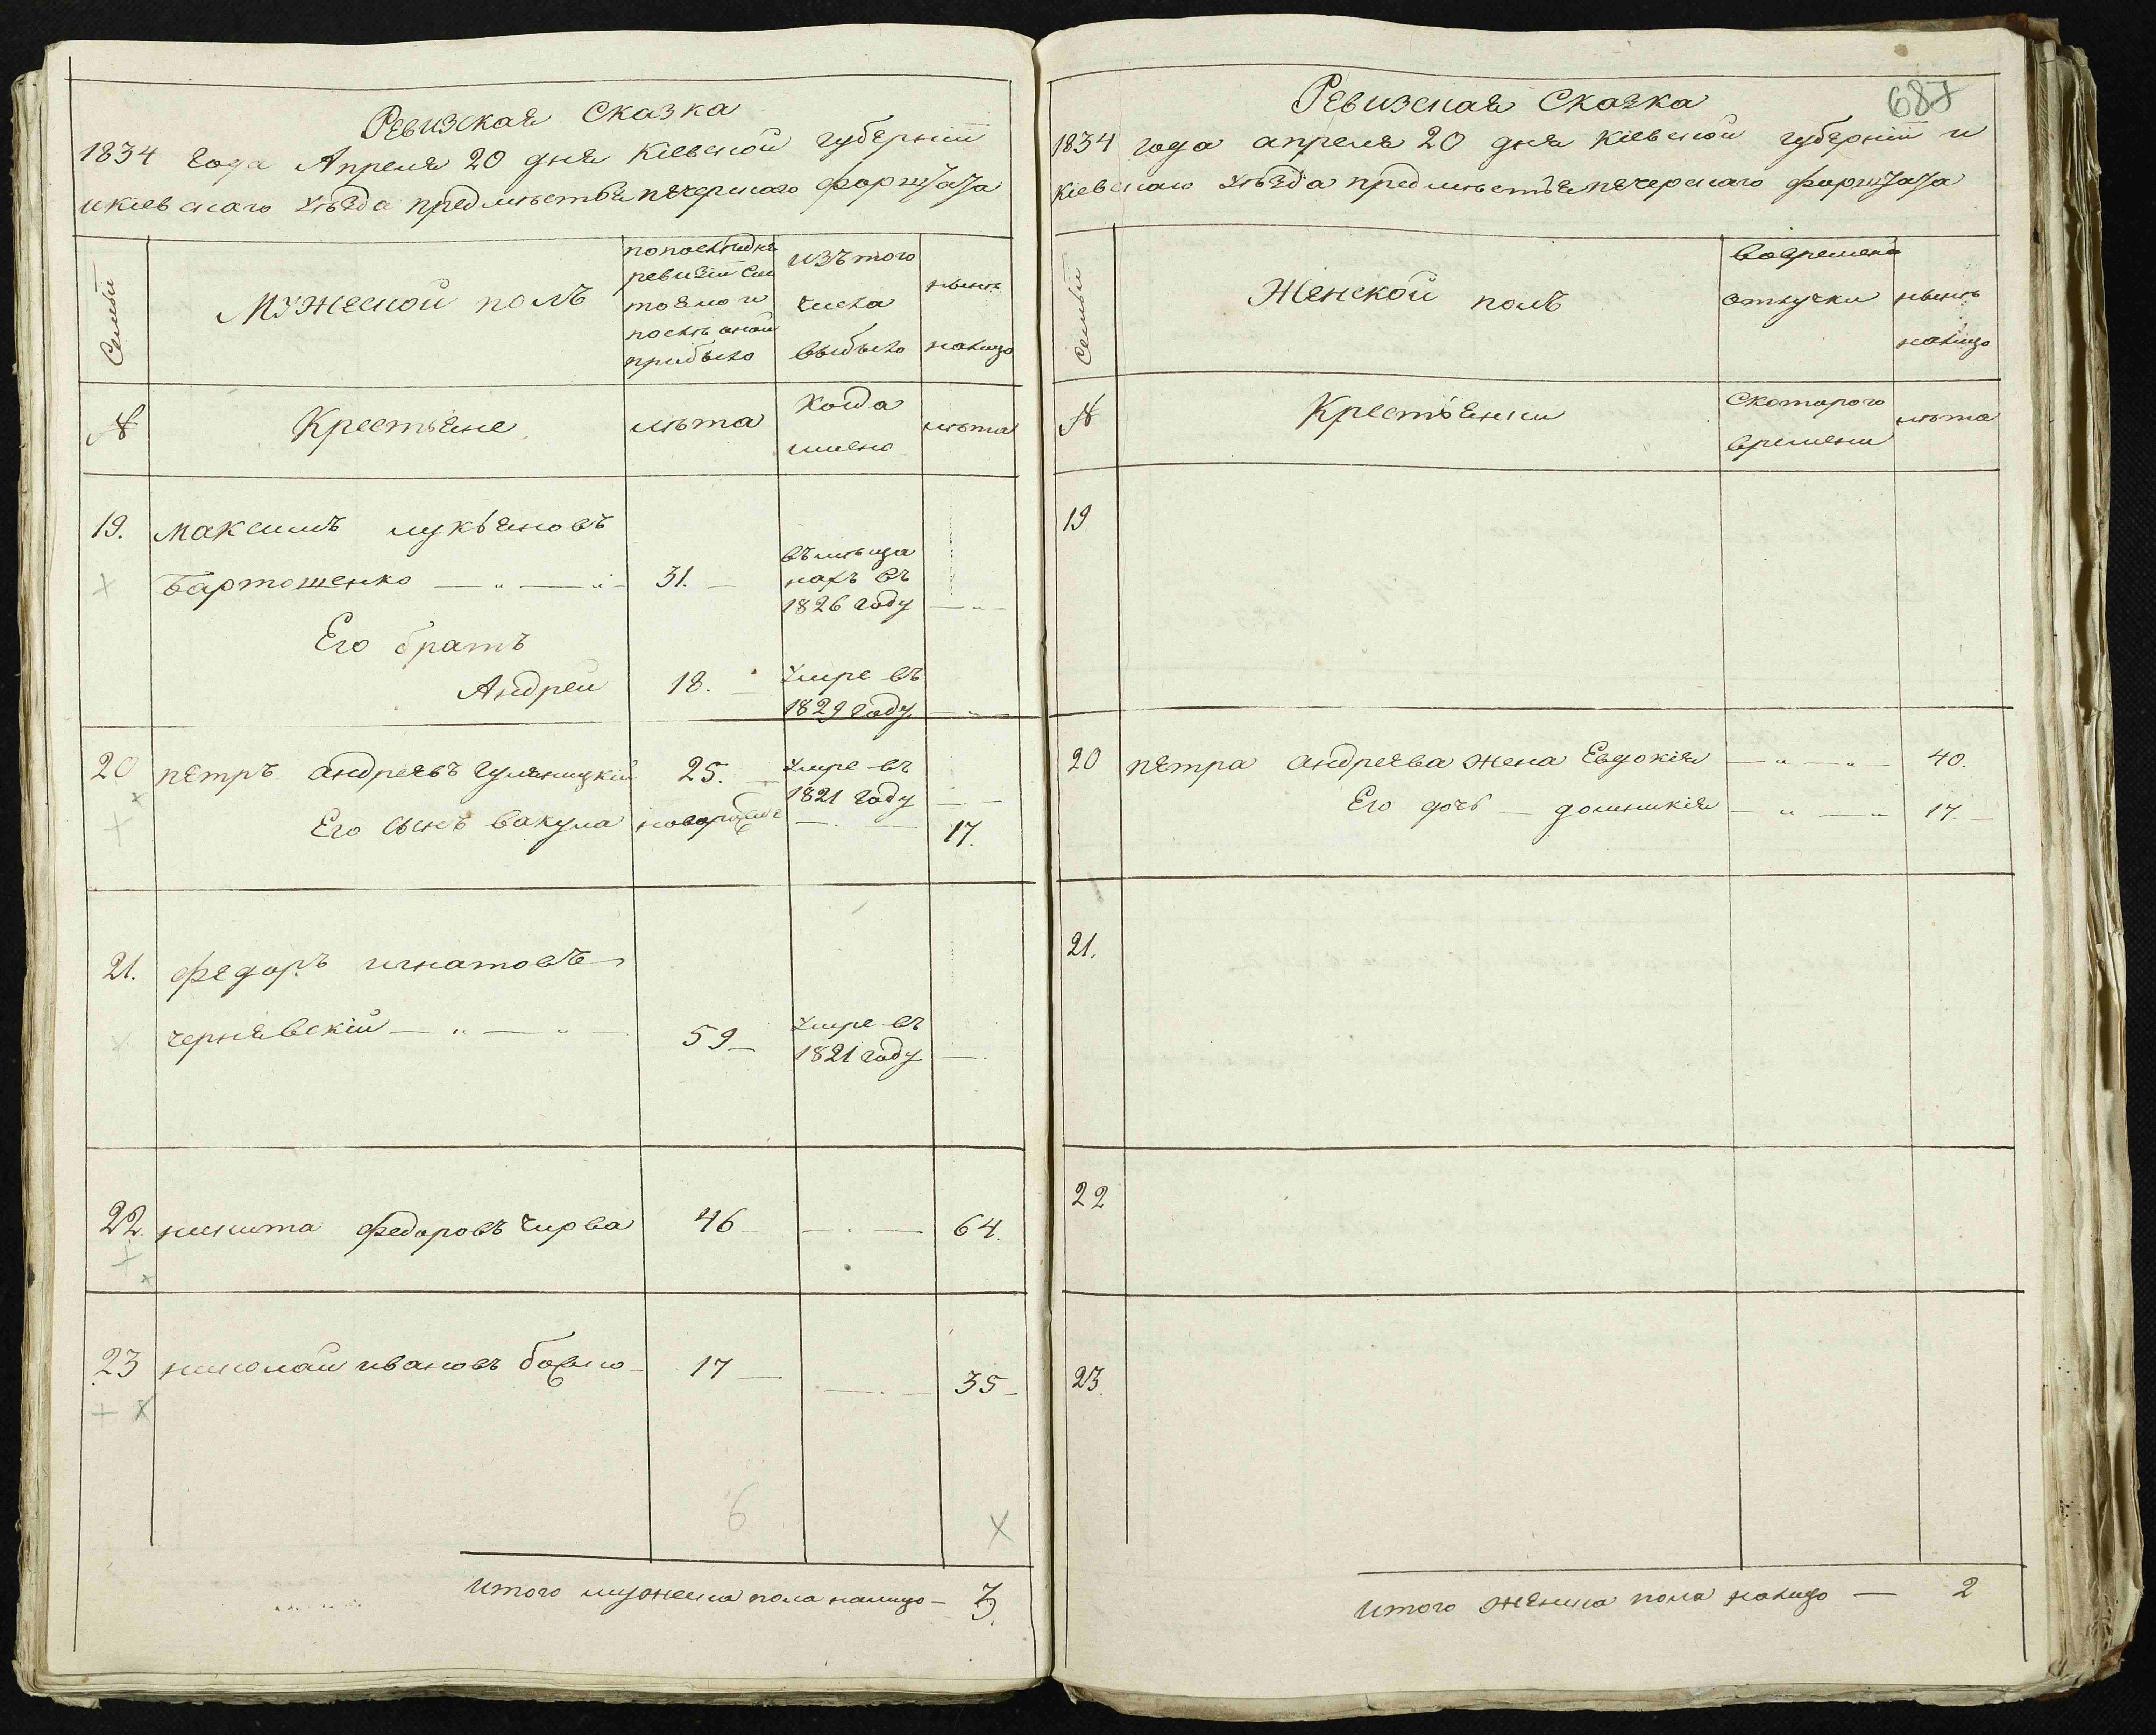 Ревизская Сказка
1834 года Апреля 20 дня Кіевской губерніи
и Кіевскаго уѣзда предмѣстья печерскаго форштата
Семьи
Мужеской полъ
по последне
ревизіи сос
тояло и
послѣ оной
прибыло
изъ того
числа
выбыло
нынѣ
налицо
№
Крестьяне
лѣта
Когда
имено
лѣта
19. Максимъ лукьяновъ
Бартошенко 31.
въ
въ
1826 году
Его братъ
Андрей 18. умре въ
1829 году
20 петръ андреевъ гуляницкій 25. умре въ
1821 году
Его сынъ вакула новорожде 17.
21. федоръ игнатовъ
чернявскій 59 умре въ
1821 году
22. никита федоровъ чирва 46 64.
23 николай ивановъ 17 35
6
Итого мужеска пола налицо 3.
Ревизская Сказка
687
1834 года апреля 20 дня Кіевской губерніи и
Кіевскаго уѣзда предмѣстья печерскаго форштата
Семьи
Женской полъ
Вовремено
отлучки
нынѣ
налицо
№
Крестьянки
Скоторого
времени
лѣта
19
20 петра андреева жена Евдокія 40.
Его дочь домникія 17.
21.
22
23.
Итого женска пола налицо 2